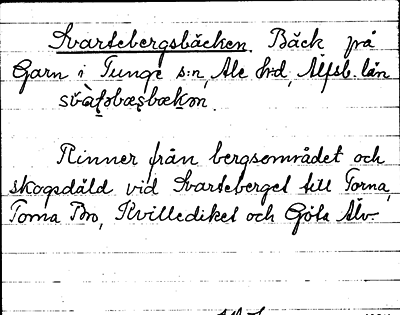 Svartebergsbäcken. Bäck på
Garn i Tunge s:n, Ale hrd, Älfsb. län
Rinner från bergsområdet och
skogsdäld vid Svarteberget till Torna,
Torna Bro, Kvillediket och Göta Älv